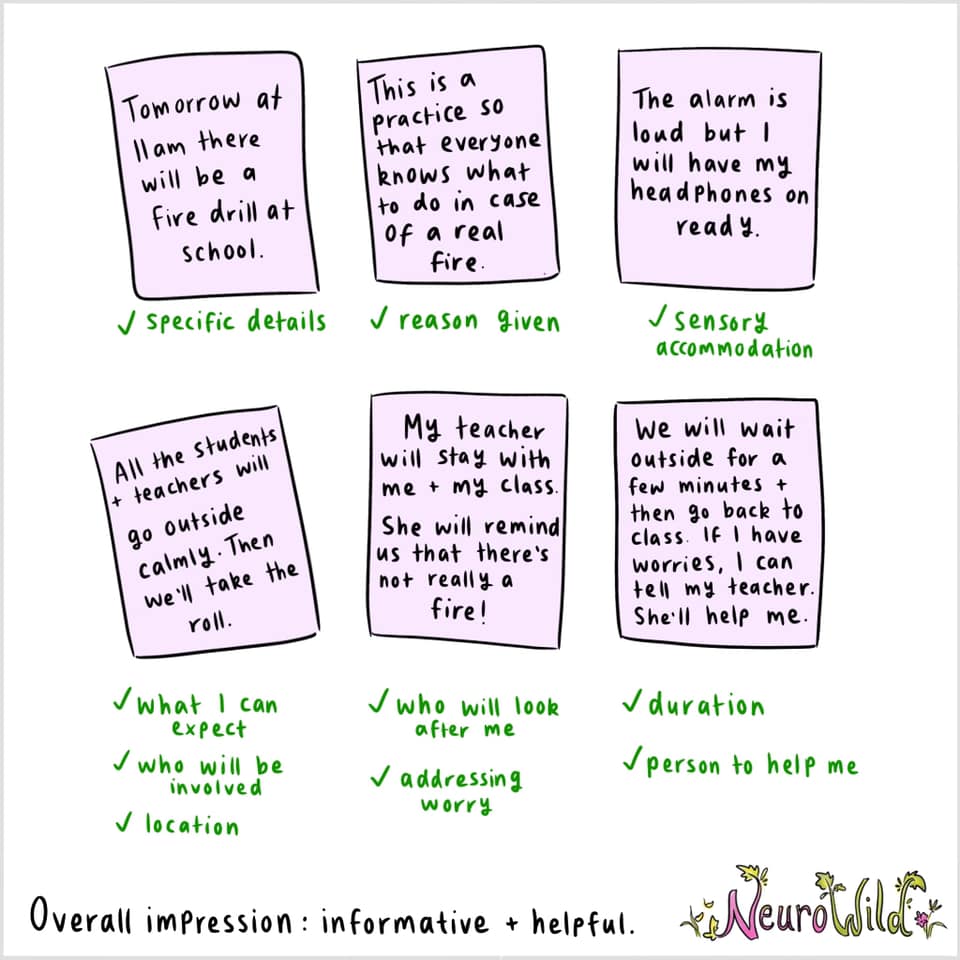 Tomorrow at
11am there
will be a
fire drill at
school.
✓ specific details
This is a
practice so
that everyone
knows what
to do in case
of a real
fire.
✓ reason given
The alarm is
loud but I
will have my
headphones on
ready.
✓ sensory
accommodation
All the students
+ teachers will
go outside
calmly. Then
we'll take the
roll.
✓ what I can
expect
✓ who will be
involved
✓ location
My teacher
will stay with
me + my class.
She will remind
us that there's
not really a
fire!
✓ who will look
after me
✓ addressing
worry
We will wait
outside for a
few minutes +
then go back to
class. If I have
worries, I can
tell my teacher.
She'll help me.
✓ duration
✓ person to help me
Overall impression: informative + helpful.
NeuroWild